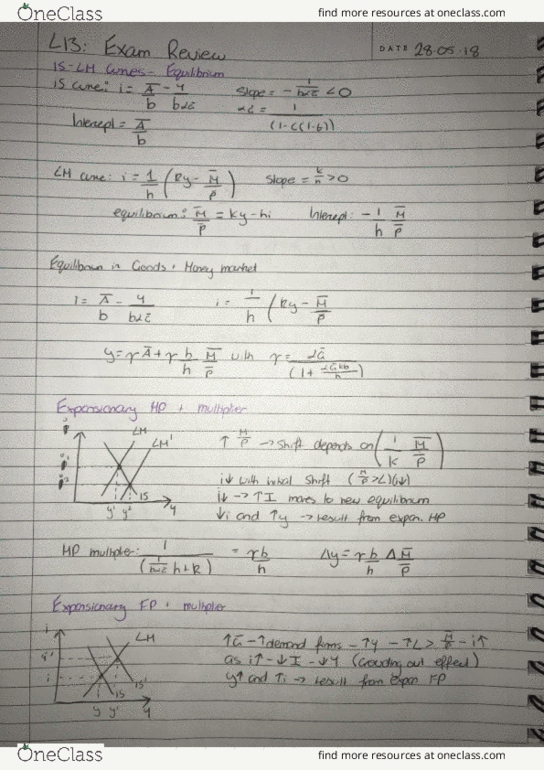 OneClass find more resources at oneclass.com
L13: Exam Review DATE 28·05·18
IS-LM Curves - Equilibrium
IS curve: i = A̅/b - y/(bαc̅) Slope = - 1/(bαc̅) < 0
Intercept = A̅/b αc̅ = 1/(1-c(1-t))
LM curve: i = 1/h (ky - M̅/P̅) Slope = k/h > 0
equilibrium: M̅/P̅ = ky - hi Intercept: - 1/h M̅/P̅
Equilibrium in Goods + Money market
i = A̅/b - y/(bαc̅) i = 1/h (ky - M̅/P̅)
y = γA̅ + γ b/h M̅/P̅ with γ = αG̅/(1 + αG̅kb/h)
Expansionary MP + multiplier
LM
LM'
↑ M̅/P̅ → Shift depends on (1/k M̅/P̅)
i↓ with initial shift
i↓ → ↑I moves to new equilibrium
↓i and ↑y → result from expan. MP
IS
y' y² y
MP multiplier: = γb/h Δy = γ b/h Δ M̅/P̅
Expansionary FP + multiplier
LM
↑G̅ - ↑demand firms - ↑Y - ↑L > M̅/P̅ - i↑
as i↑ - ↓I - ↓Y (Crowding out effect)
y↑ and ↑i → result from Expan FP
IS IS'
y y' y
OneClass find more resources at oneclass.com